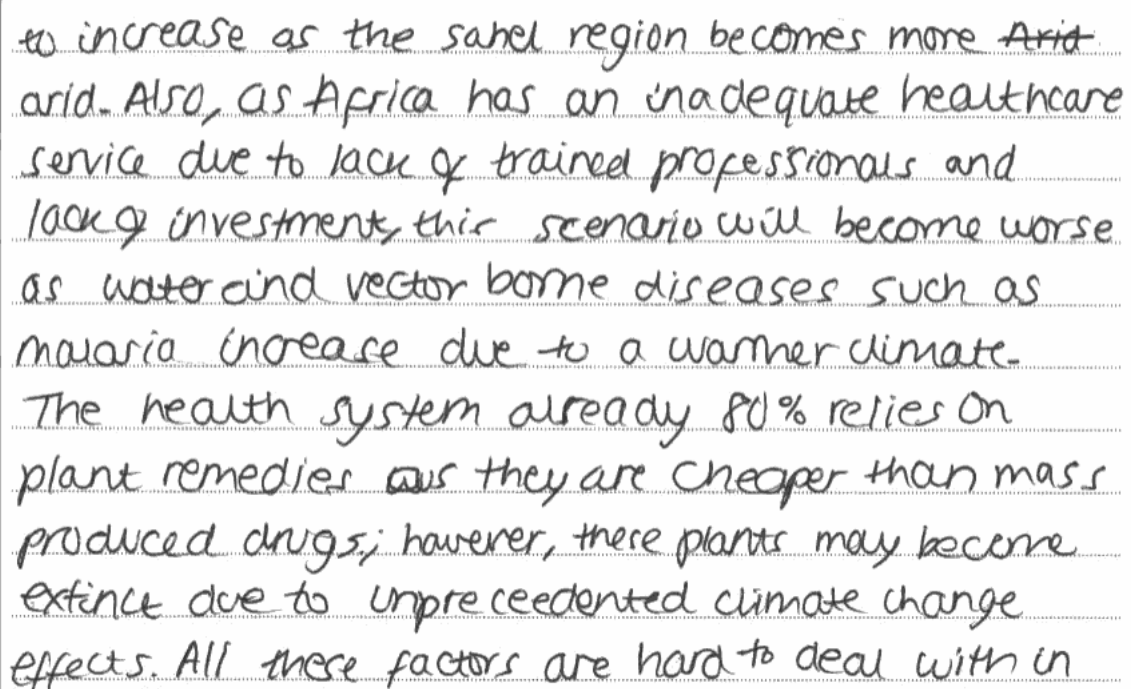 to increase as the sahel region becomes more Arid
arid. Also, as Africa has an inadequate healthcare
service due to lack of trained professionals and
lack of investment, this scenario will become worse
as water and vector borne diseases such as
malaria increase due to a warmer climate.
The health system already 80% relies on
plant remedies as they are cheaper than mass
produced drugs; however, these plants may become
extinct due to unpreceedented climate change
effects. All these factors are hard to deal with in